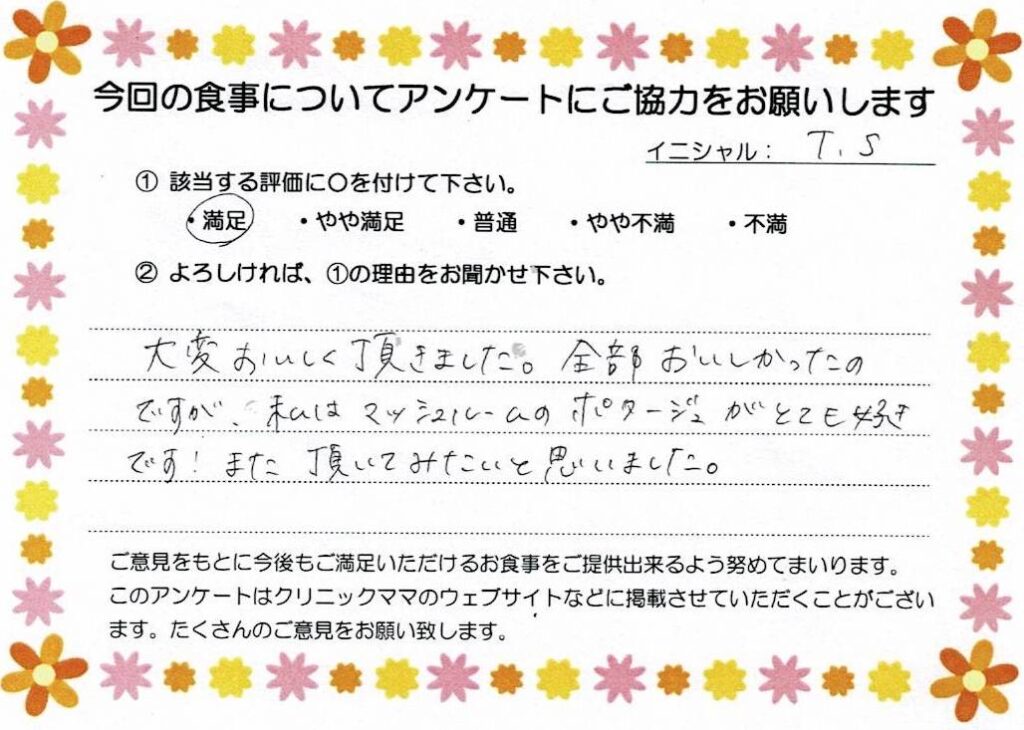 今回の食事についてアンケートにご協力をお願いします
イニシャル： T.S
① 該当する評価に〇を付けて下さい。
・満足 ・やや満足 ・普通 ・やや不満 ・不満
② よろしければ、①の理由をお聞かせ下さい。
大変おいしく頂きました。全部おいしかったの
ですが、私はマッシュルームのポタージュがとても好き
です！また頂いてみたいと思いました。
ご意見をもとに今後もご満足いただけるお食事をご提供出来るよう努めてまいります。
このアンケートはクリニックママのウェブサイトなどに掲載させていただくことがござい
ます。たくさんのご意見をお願い致します。